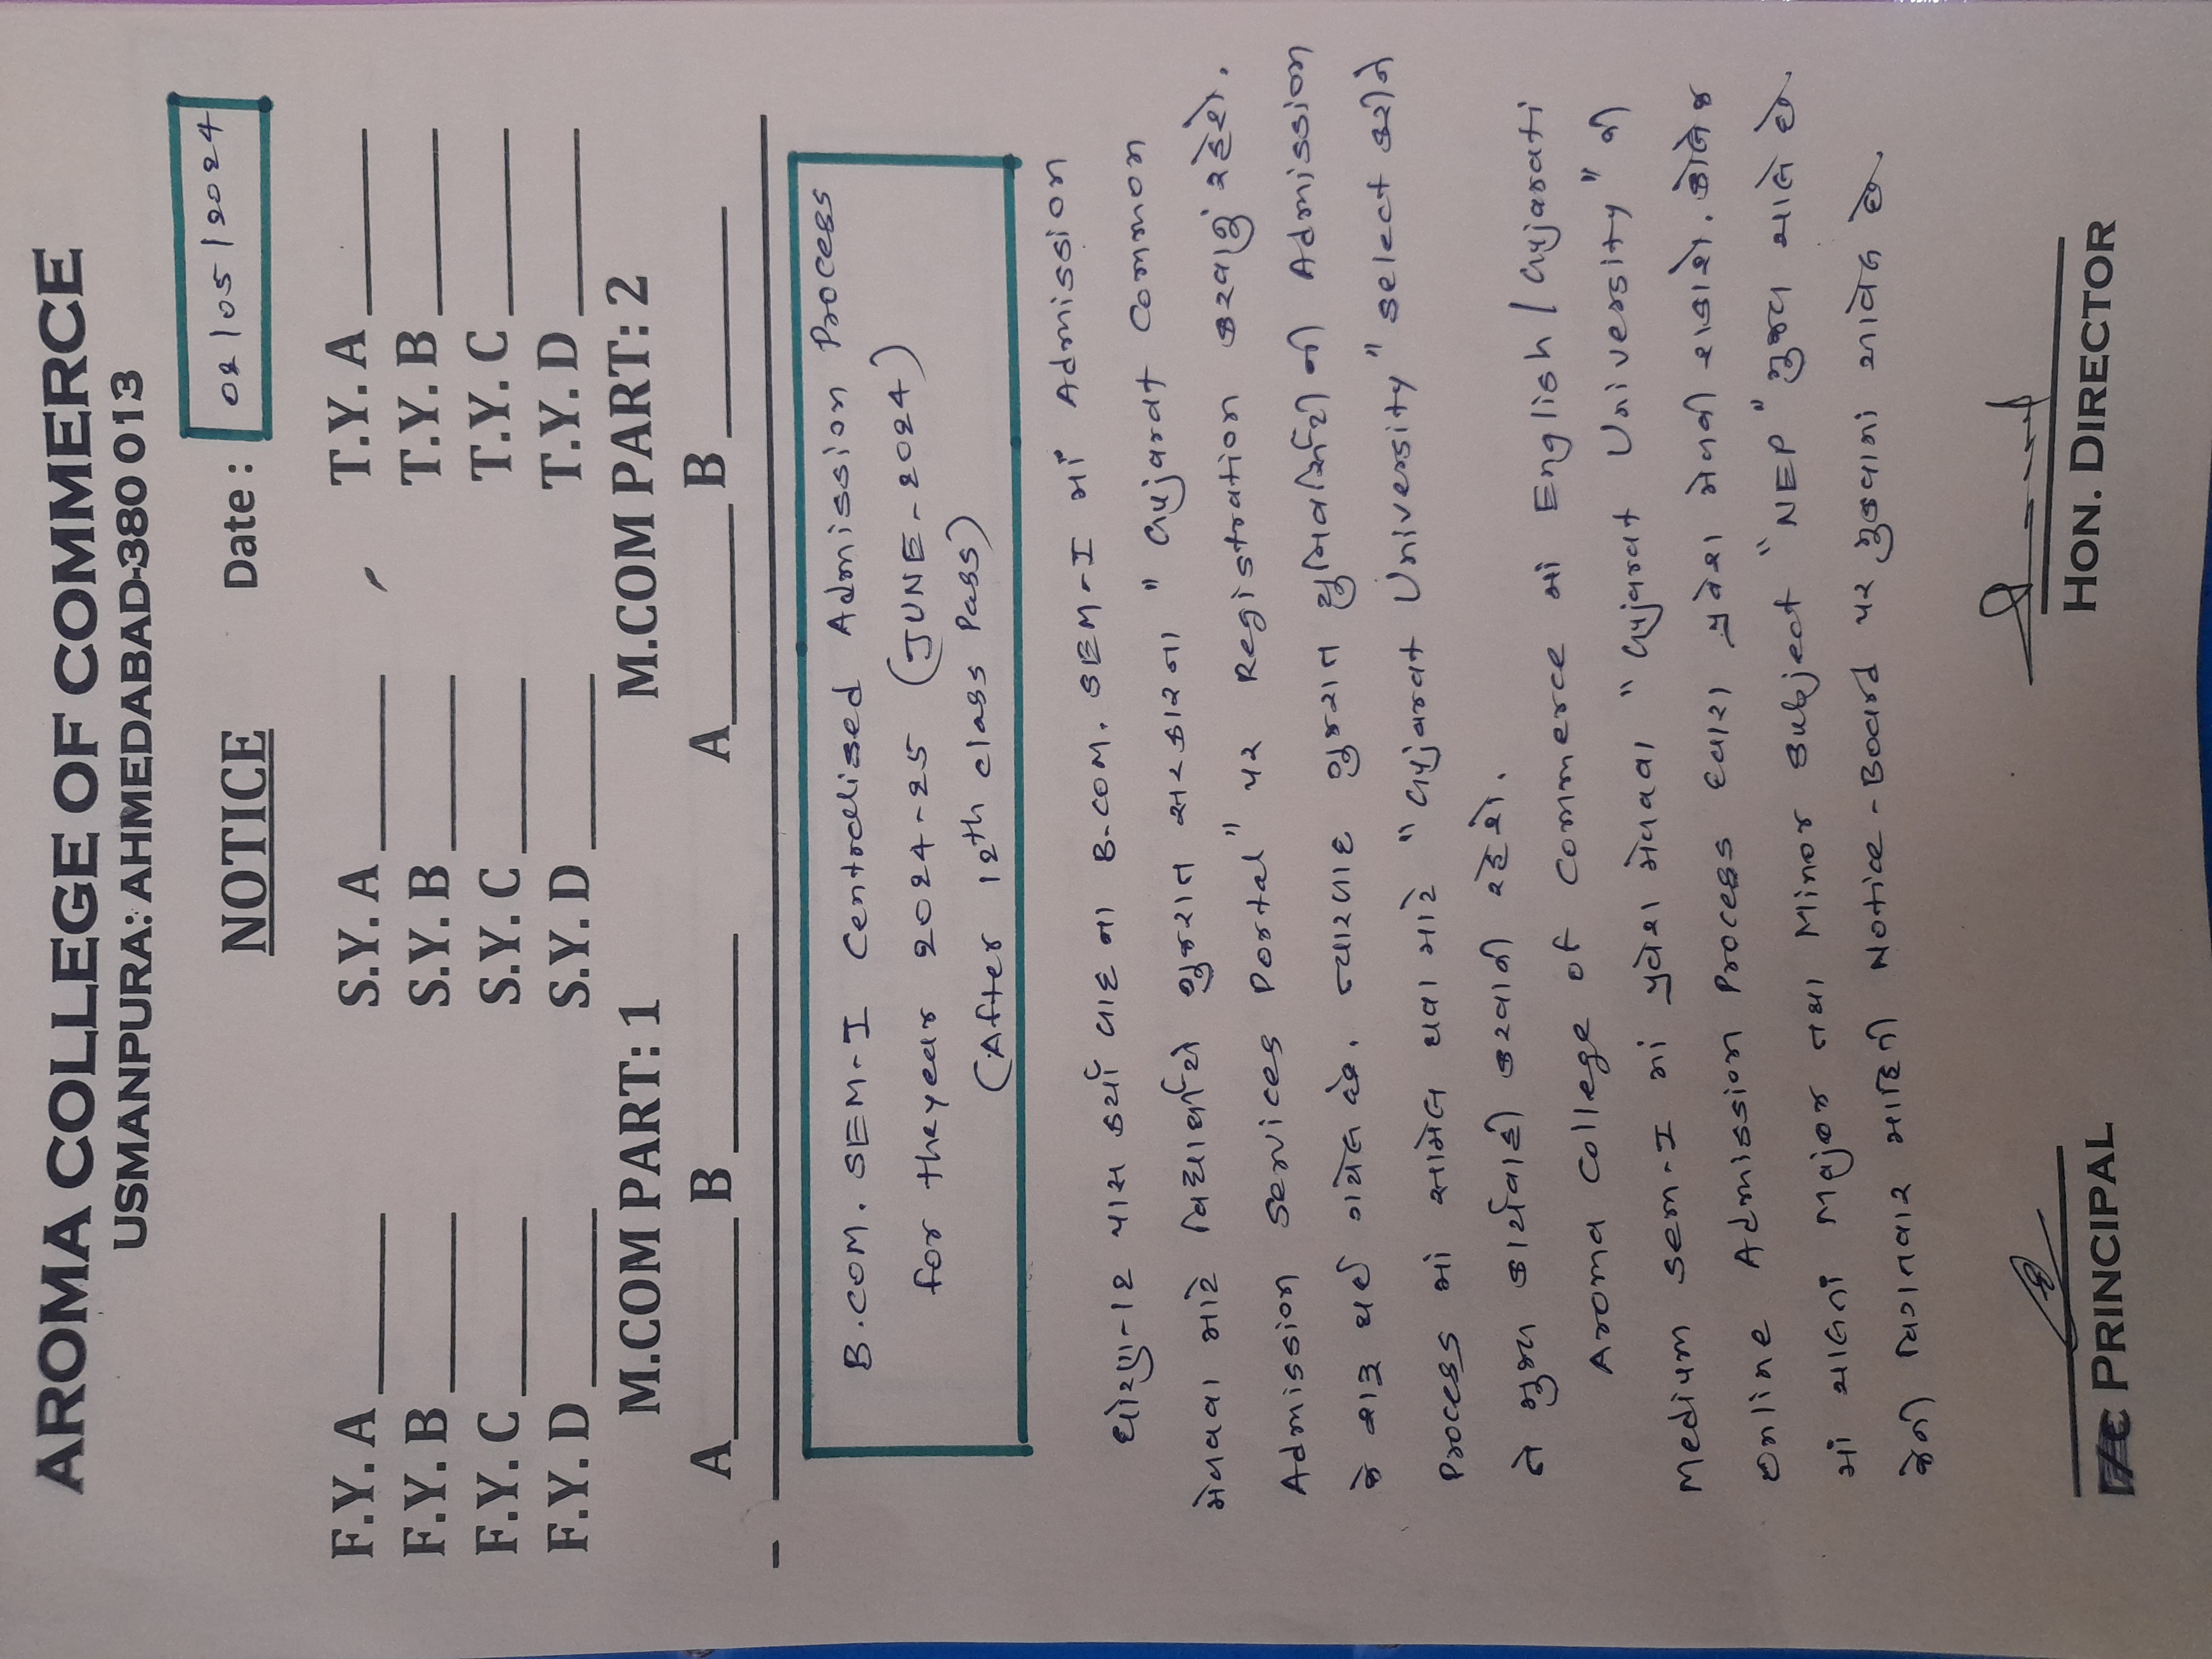 AROMA COLLEGE OF COMMERCE
USMANPURA: AHMEDABAD-380 013
NOTICE Date : 02/05/2024
F.Y. A ______ S.Y. A ______ T.Y. A ______
F.Y. B ______ S.Y. B ______ T.Y. B ______
F.Y. C ______ S.Y. C ______ T.Y. C ______
F.Y. D ______ S.Y. D ______ T.Y. D ______
M.COM PART: 1 M.COM PART: 2
A______ B______ A______ B______
B.COM. SEM-I Centralised Admission Process
for the year 2024-25 (JUNE-2024)
(After 12th class Pass)
ધોરણ-12 પાસ કર્યા બાદ ના B.COM. SEM-I માં Admission
મેળવવા માટે વિદ્યાર્થીએ ગુજરાત સરકારના "Gujarat Common
Admission Services Portal" પર Registration કરવાનું રહેશે.
જે શરૂ થઈ ગયેલ છે. ત્યારબાદ ગુજરાત યુનિવર્સિટી ની Admission
Process માં સામેલ થવા માટે "Gujarat University" select કરીને
તે મુજબ કાર્યવાહી કરવાની રહેશે.
Aroma College of Commerce માં English/Gujarati
Medium Sem-I માં પ્રવેશ મેળવવા "Gujarat University" ની
Online Admission Process દ્વારા પ્રવેશ મેળવી શકાશે. કોલેજ
માં ચાલતાં Major તથા Minor Subject "NEP" મુજબ ચાલે છે.
જેની વિગતવાર માહિતી Notice-Board પર મુકવામાં આવેલ છે.
I/C PRINCIPAL HON. DIRECTOR